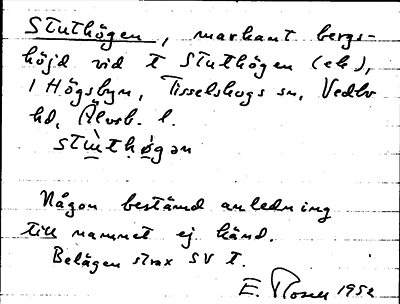 Stuthögen, markant bergs-
höjd vid t Stuthögen (ek),
i Högsbyn, Tisselskogs sn, Vedbo
hd, Älvsb. l.
stù̱thø̣gən
Någon bestämd anledning
till namnet ej känd.
Belägen strax SV t.
E. Rosell 1952